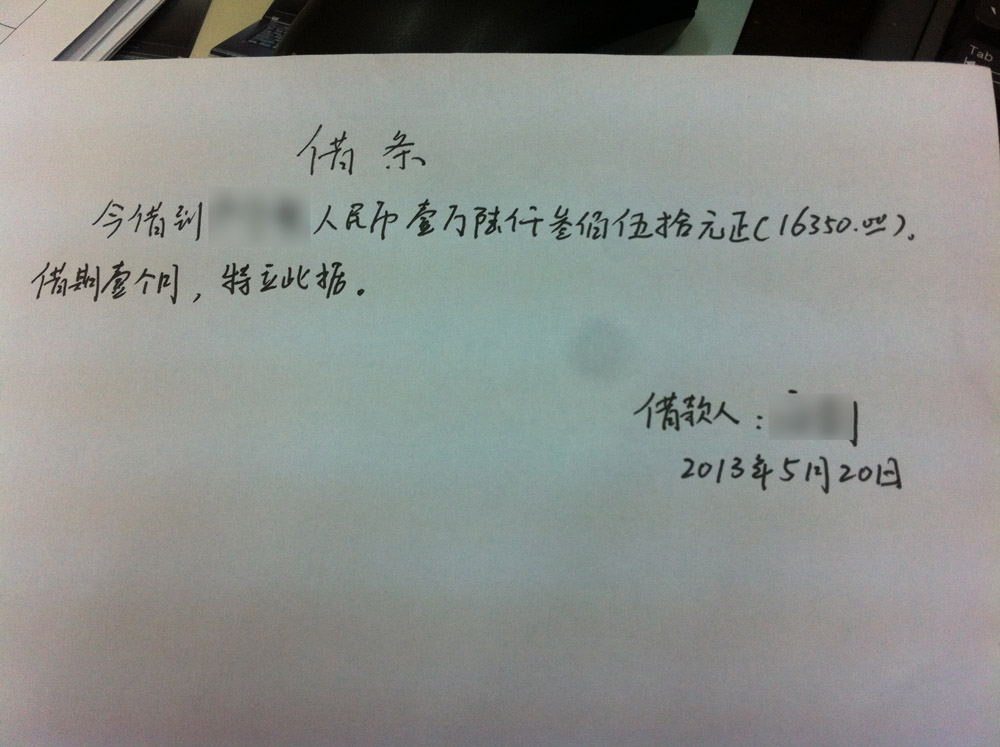 借条
今借到 人民币壹万陆仟叁佰伍拾元正(16350.00)。
借期壹个月,特立此据。
借款人:
2013年5月20日
Tab